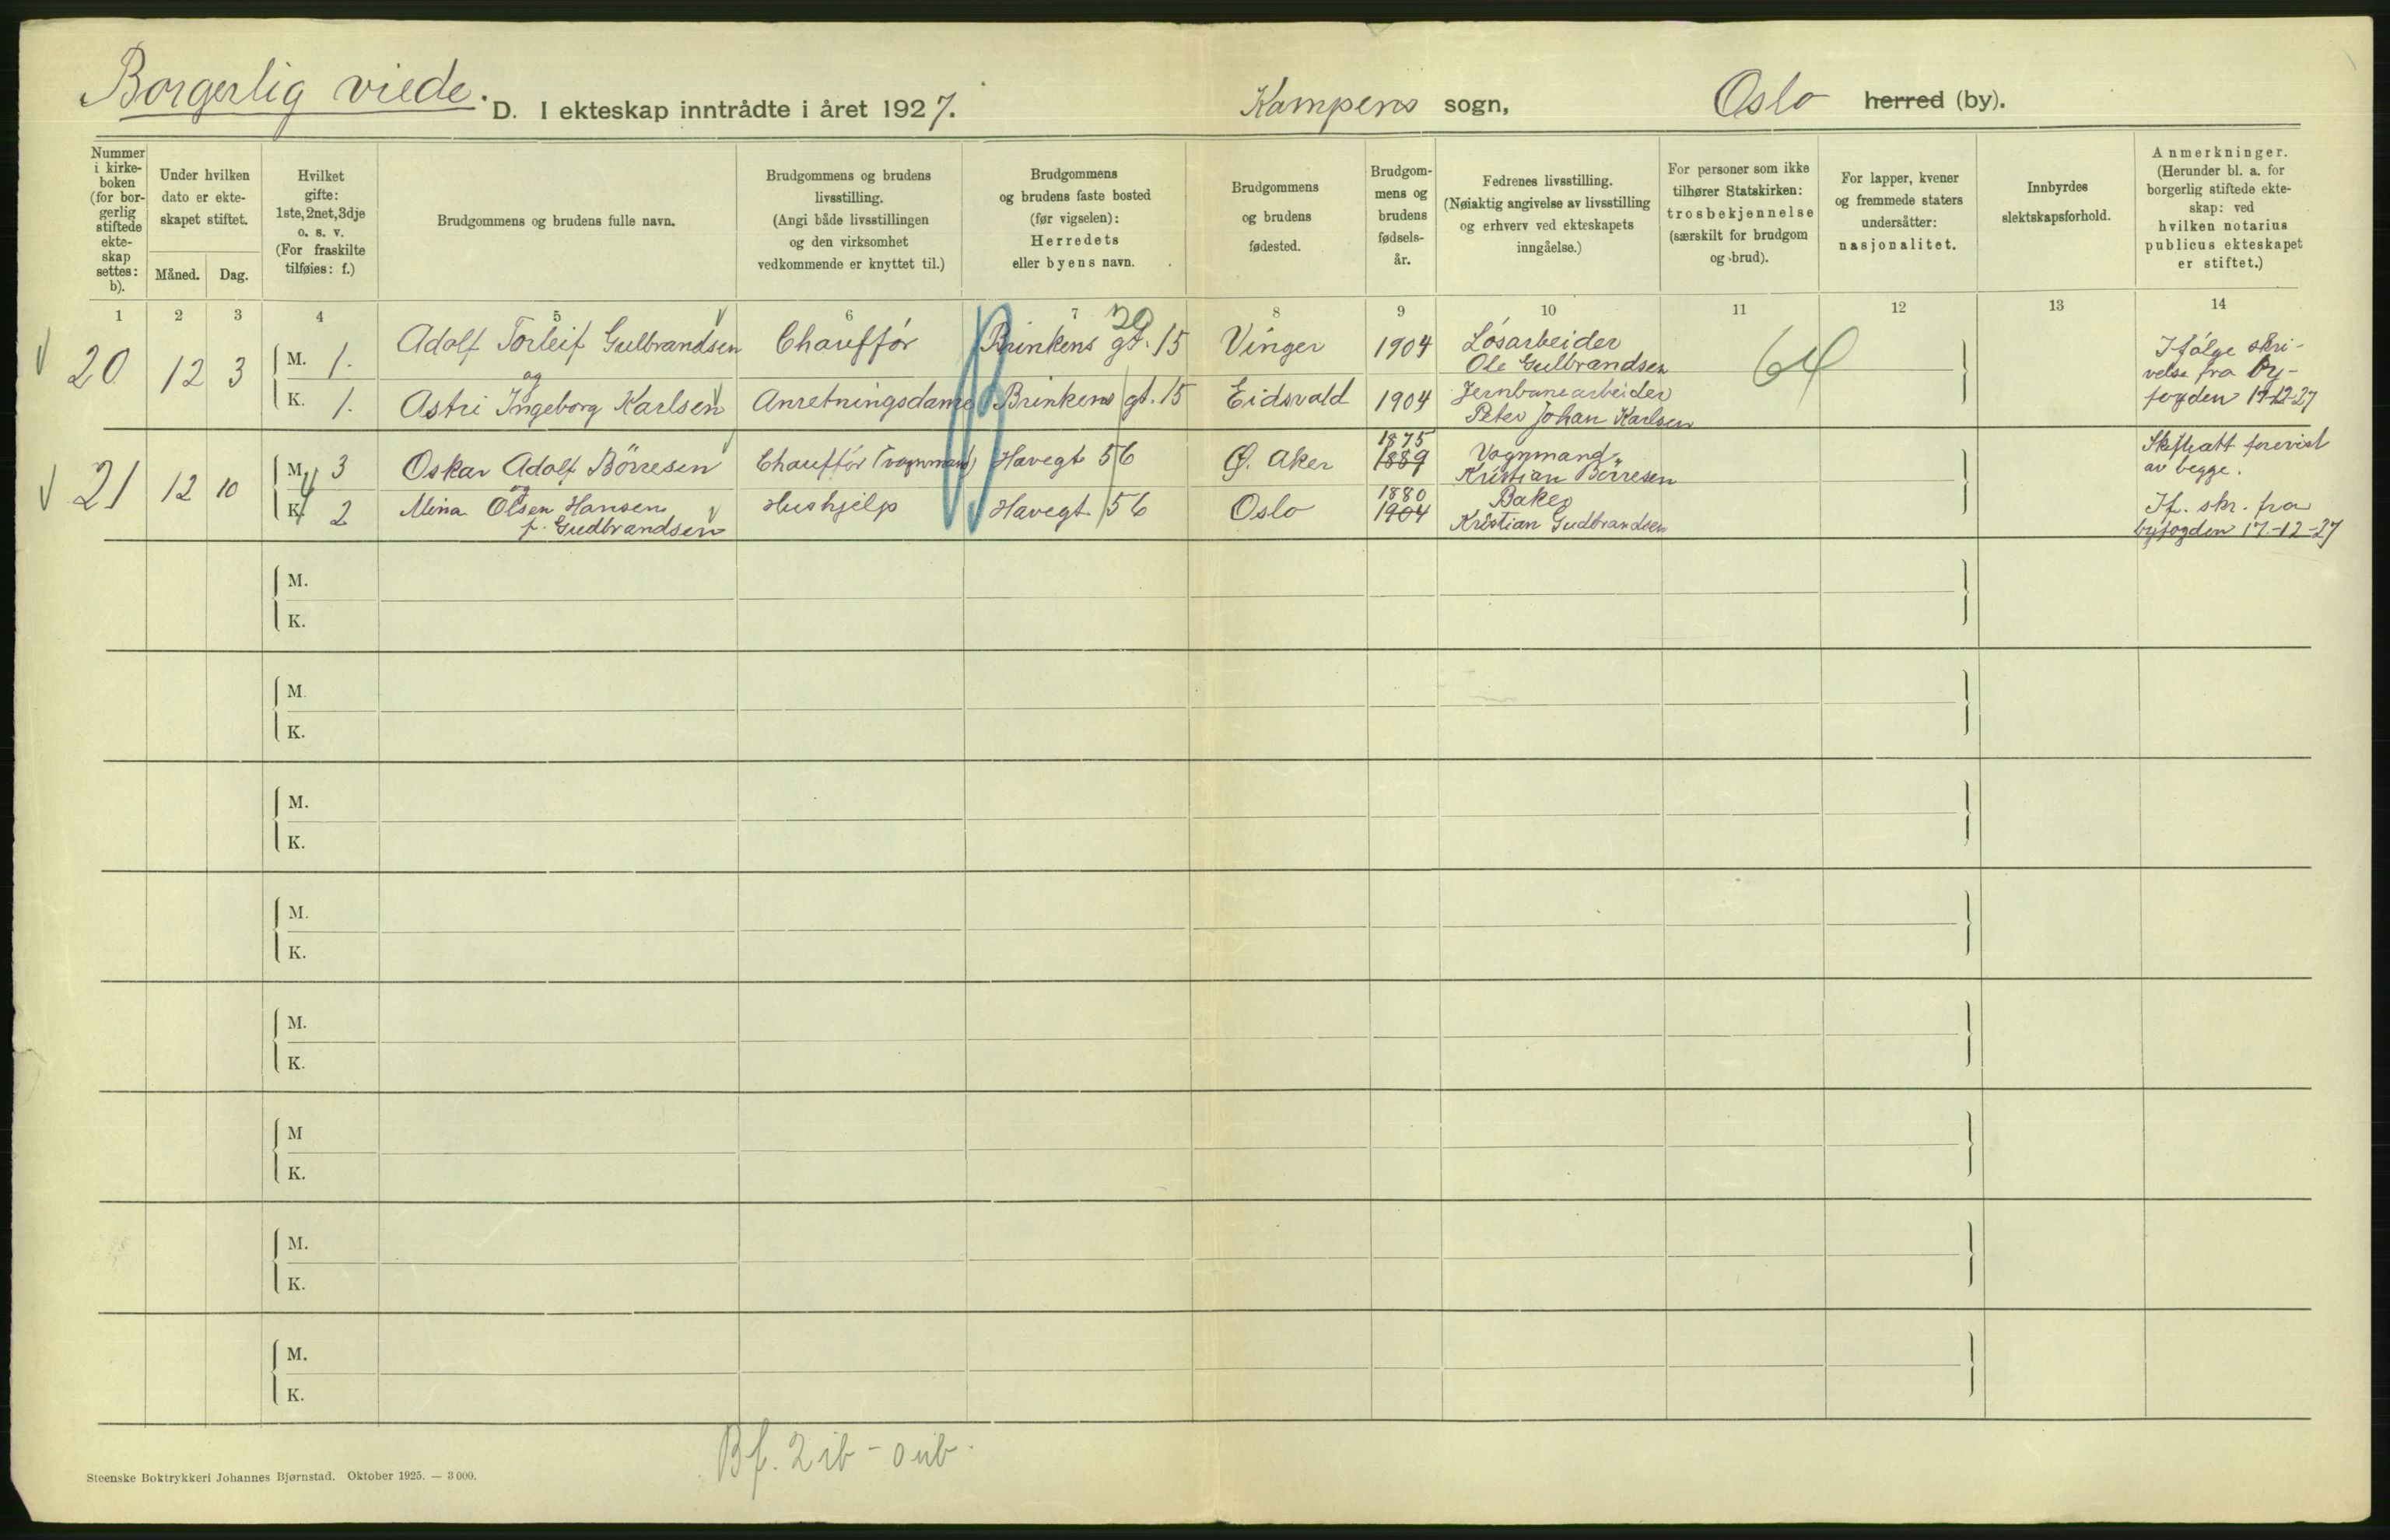 Borgerlig viede.
D. I ekteskap inntrådte i året 1927.
Kampens sogn,
Oslo herred (by).
Nummer i kirke-boken (for bor-gerlig stiftede ekte-skap settes: b).
Under hvilken dato er ekte-skapet stiftet.
Måned.
Dag.
Hvilket gifte: 1ste, 2net, 3dje o. s. v. (For fraskilte tilføies: f.)
Brudgommens og brudens fulle navn.
Brudgommens og brudens livsstilling. (Angi både livsstillingen og den virksomhet vedkommende er knyttet til.)
Brudgommens og brudens faste bosted (før vigselen): Herredets eller byens navn.
Brudgommens og brudens fødested.
Brudgom-mens og brudens fødsels-år.
Fedrenes livsstilling. (Nøiaktig angivelse av livsstilling og erhverv ved ekteskapets inngåelse.)
For personer som ikke tilhører Statskirken: trosbekjennelse (særskilt for brudgom og brud).
For lapper, kvener og fremmede staters undersåtter: nasjonalitet.
Innbyrdes slektskapsforhold.
Anmerkninger. (Herunder bl. a. for borgerlig stiftede ekte-skap: ved hvilken notarius publicus ekteskapet er stiftet.)
1 2 3 4 5 6 7 8 9 10 11 12 13 14
20 12 3
M. 1. Adolf Torleif Gulbrandsen Chauffør Brinkens gt. 15 Vinger 1904 Løsarbeider
Ole Gulbrandsen
20
64
og
K. 1. Astri Ingeborg Karlsen Anretningsdame Brinkens gt. 15 Eidsvold 1904 Jernbanearbeider
Peter Johan Karlsen
Ifølge skri-
velse fra by-
fogden 17-12-27
21 12 10
M. 3 Oskar Adolf Börresen Chauffør (vognmand) Havegt 56 Ø. Aker 1875
1889 Vognmand
Kristian Börresen
og
K. 2 Mina Olsen Hansen
f. Gudbrandsen
Hushjelp Havegt 56 Oslo 1880
1904 Baker
Kristian Gudbrandsen
Skifteatt forevist
av begge.
If. skr. fra
byfogden 17-12-27
M.
K.
M.
K.
M.
K.
M.
K.
M.
K.
M
K.
M.
K.
M.
K.
Bf. 2 ib - 0 ub.
Steenske Boktrykkeri Johannes Bjørnstad. Oktober 1925. — 3 000.